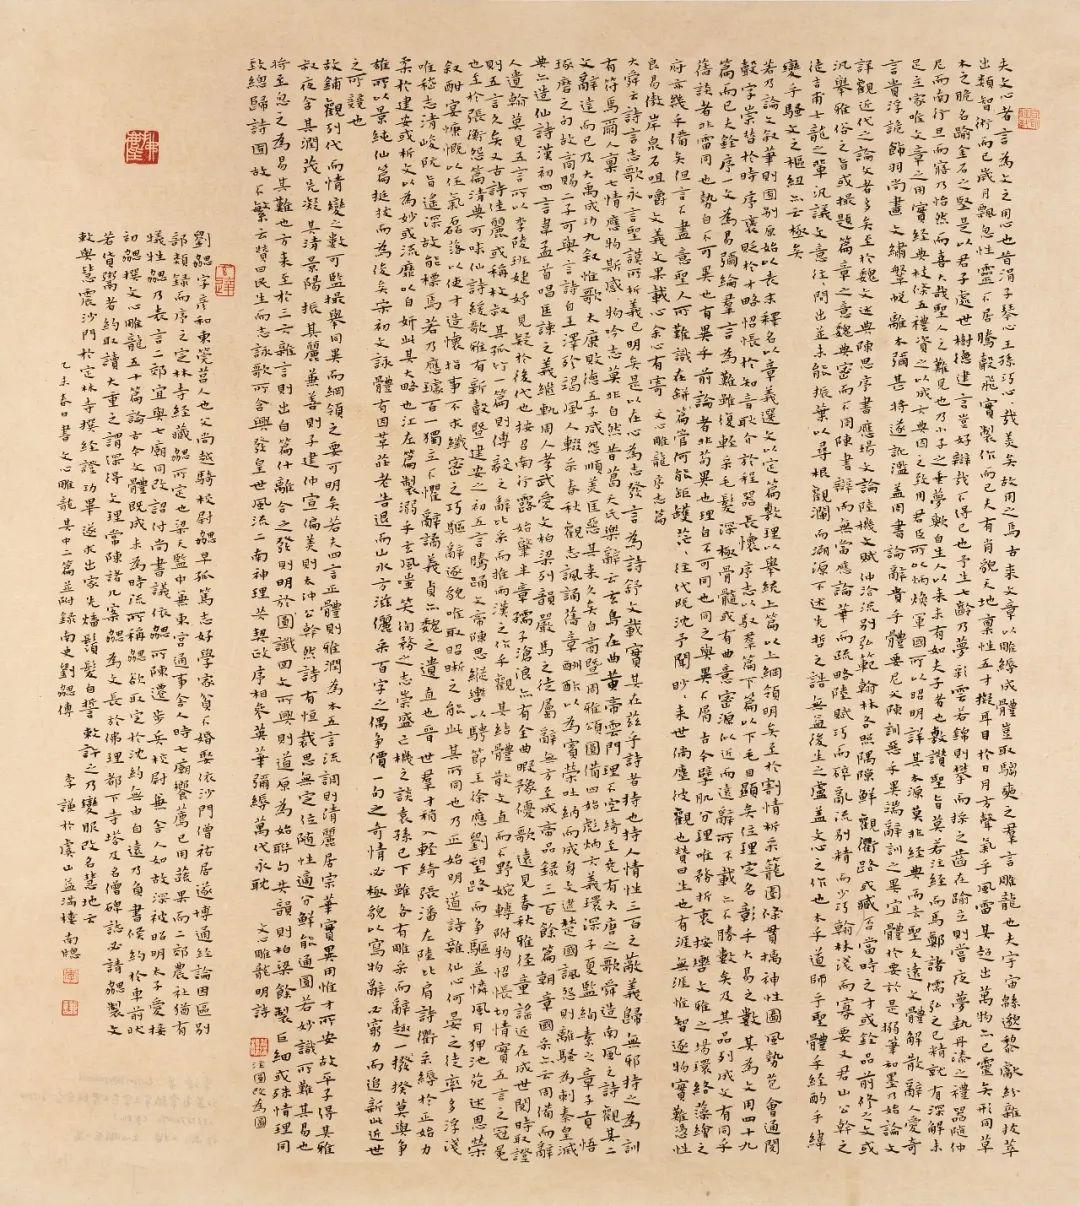 夫文心者言為文之用心也昔涓子琴心王孫巧心哉美矣故用之焉古來文章以雕縟成體豈取騶奭之羣言雕龍也夫宇宙緜邈黎獻紛雜拔萃
出類智術而已歲月飄忽性靈不居騰聲飛實製作而已夫有肖貌天地稟性五才擬耳目於日月方聲氣乎風雷其超出萬物亦已靈矣形同草
木之脆名踰金石之堅是以君子處世樹德建言豈好辯哉不得已也予生七齡乃夢彩雲若錦則攀而採之齒在踰立則嘗夜夢執丹漆之禮器隨仲
尼而南行旦而寤乃怡然而喜大哉聖人之難見也乃小子之垂夢歟自生人以來未有如夫子者也敷讚聖旨莫若注經而馬鄭諸儒弘之已精就有深解未
足立家唯文章之用實經典枝條五禮資之以成六典因之致用君臣所以炳煥軍國所以昭明詳其本源莫非經典而去聖久遠文體解散辭人愛奇
言貴浮詭飾羽尚畫文繡鞶帨離本彌甚將遂訛濫蓋周書論辭貴乎體要尼父陳訓惡乎異端辭訓之異宜體於要於是搦筆和墨乃始論文
詳觀近代之論文者多矣至於魏文述典陳思序書應瑒文論陸機文賦仲洽流別弘範翰林各照隅隙鮮觀衢路或臧否當時之才或銓品前修之文或
汎舉雅俗之旨或撮題篇章之意魏典密而不周陳書辯而無當應論華而疏略陸賦巧而碎亂流別精而少巧翰林淺而寡要又君山公幹之
徒吉甫士龍之輩汎議文意往往間出並未能振葉以尋根觀瀾而溯源不述先哲之誥無益後生之慮蓋文心之作也本乎道師乎聖體乎經酌乎緯
變乎騷文之樞紐亦云極矣
若乃論文敘筆則囿別原始以表末釋名以章義選文以定篇敷理以舉統上篇以上綱領明矣至於割情析采籠圈條貫摛神性圖風勢苞會通閱
聲字崇替於時序褒貶於才略怊悵於知音耿介於程器長懷序志以馭羣篇下篇以下毛目顯矣位理定名彰乎大易之數其為文用四十九
篇而已夫銓序一文為易彌綸羣言為難雖復輕采毛髮深極骨髓或有曲意密源似近而遠辭所不載亦不勝數矣及其品列成文有同乎
舊談者非雷同也勢自不可異也有異乎前論者非苟異也理自不可同也同之與異不屑古今擘肌分理唯務折衷按轡文雅之場環絡藻繪之
府亦幾乎備矣但言不盡意聖人所難識在缾管何能矩矱茫茫往代既沈予聞眇眇來世倘塵彼觀也贊曰生也有涯無涯惟智逐物實難憑性
良易傲岸泉石咀嚼文義文果載心余心有寄 文心雕龍序志篇
大舜云詩言志歌永言聖謨所析義已明矣是以在心為志發言為詩舒文載實其在茲乎詩者持也持人情性三百之蔽義歸無邪持之為訓
有符焉爾人稟七情應物斯感感物吟志莫非自然昔葛天氏樂辭云玄鳥在曲黃帝雲門理不空綺至堯有大唐之歌舜造南風之詩觀其二
文辭達而已及大禹成功九敘惟歌太康敗德五子咸怨順美匡惡其來久矣自商暨周雅頌圓備四始彪炳六義環深子夏監絢素之章子貢悟
琢磨之句故商賜二子可與言詩自王澤殄竭風人輟采春秋觀志諷誦舊章酬酢以為賓榮吐納而成身文逮楚國諷怨則離騷為刺秦皇滅
典亦造仙詩漢初四言韋孟首唱匡諫之義繼軌周人孝武愛文柏梁列韻嚴馬之徒屬辭無方至成帝品錄三百餘篇朝章國采亦云周備而辭
人遺翰莫見五言所以李陵班婕妤見疑於後代也按召南行露始肇半章孺子滄浪亦有全曲暇豫優歌遠見春秋邪徑童謠近在成世閱時取證
則五言久矣又古詩佳麗或稱枚叔其孤竹一篇則傅毅之辭比采而推兩漢之作乎觀其結體散文直而不野婉轉附物怊悵切情實五言之冠冕
也至於張衡怨篇清典可味仙詩緩歌雅有新聲暨建安之初五言騰踊文帝陳思縱轡以騁節王徐應劉望路而爭驅並憐風月狎池苑述恩榮
敘酣宴慷慨以任氣磊落以使才造懷指事不求纖密之巧驅辭逐貌唯取昭晰之能此其所同也乃正始明道詩雜仙心何晏之徒率多浮淺
唯嵇志清峻阮旨遙深故能標焉若乃應璩百一獨立不懼辭譎義貞亦魏之遺直也晉世羣才稍入輕綺張潘左陸比肩詩衢采縟於正始力
柔於建安或析文以為妙或流靡以自妍此其大略也江左篇製溺乎玄風嗤笑徇務之志崇盛亡機之談袁孫已下雖各有雕采而辭趣一揆莫與爭
雄所以景純仙篇挺拔而為俊矣宋初文詠體有因革莊老告退而山水方滋儷采百字之偶爭價一句之奇情必極貌以寫物辭必窮力而追新此近世
之所競也
故鋪觀列代而情變之數可監撮舉同異而綱領之要可明矣若夫四言正體則雅潤為本五言流調則清麗居宗華實異用惟才所安故平子得其雅
叔夜含其潤茂先凝其清景陽振其麗兼善則子建仲宣偏美則太沖公幹然詩有恒裁思無定位隨性適分鮮能通圓若妙識所難其易也
將至忽之為易其難也方來至於三六雜言則出自篇什離合之發則明於圖讖回文所興則道原為始聯句共韻則柏梁餘製巨細或殊情理同
致總歸詩囿故不繁云贊曰民生而志詠歌所含興發皇世風流二南神理共契政序相參英華彌縟萬代永耽 文心雕龍明詩
注圖改為圓
劉勰字彥和東莞莒人也父尚越騎校尉勰早孤篤志好學家貧不婚娶依沙門僧祐居遂博通經論因區別
部類錄而序之定林寺經藏勰所定也梁天監中兼東宮通事舍人時七廟饗薦已用蔬果而二郊農社猶有
犧牲勰乃表言二郊宜與七廟同改詔付尚書議依勰所陳遷步兵校尉兼舍人如故深被昭明太子愛接
初勰撰文心雕龍五十篇論古今文體既成未為時流所稱勰欲取定於沈約無由自達乃負書候約於車前狀
若貨鬻者約取讀大重之謂深得文理常陳諸几案勰為文長於佛理都下寺塔及名僧碑誌必請勰製文
敕與慧震沙門於定林寺撰經證功畢遂求出家先燔鬚髮自誓敕許之乃變服改名慧地云
乙未春日書文心雕龍其中二篇並附錄南史劉勰傳 李謹於虞山益滿樓南牕